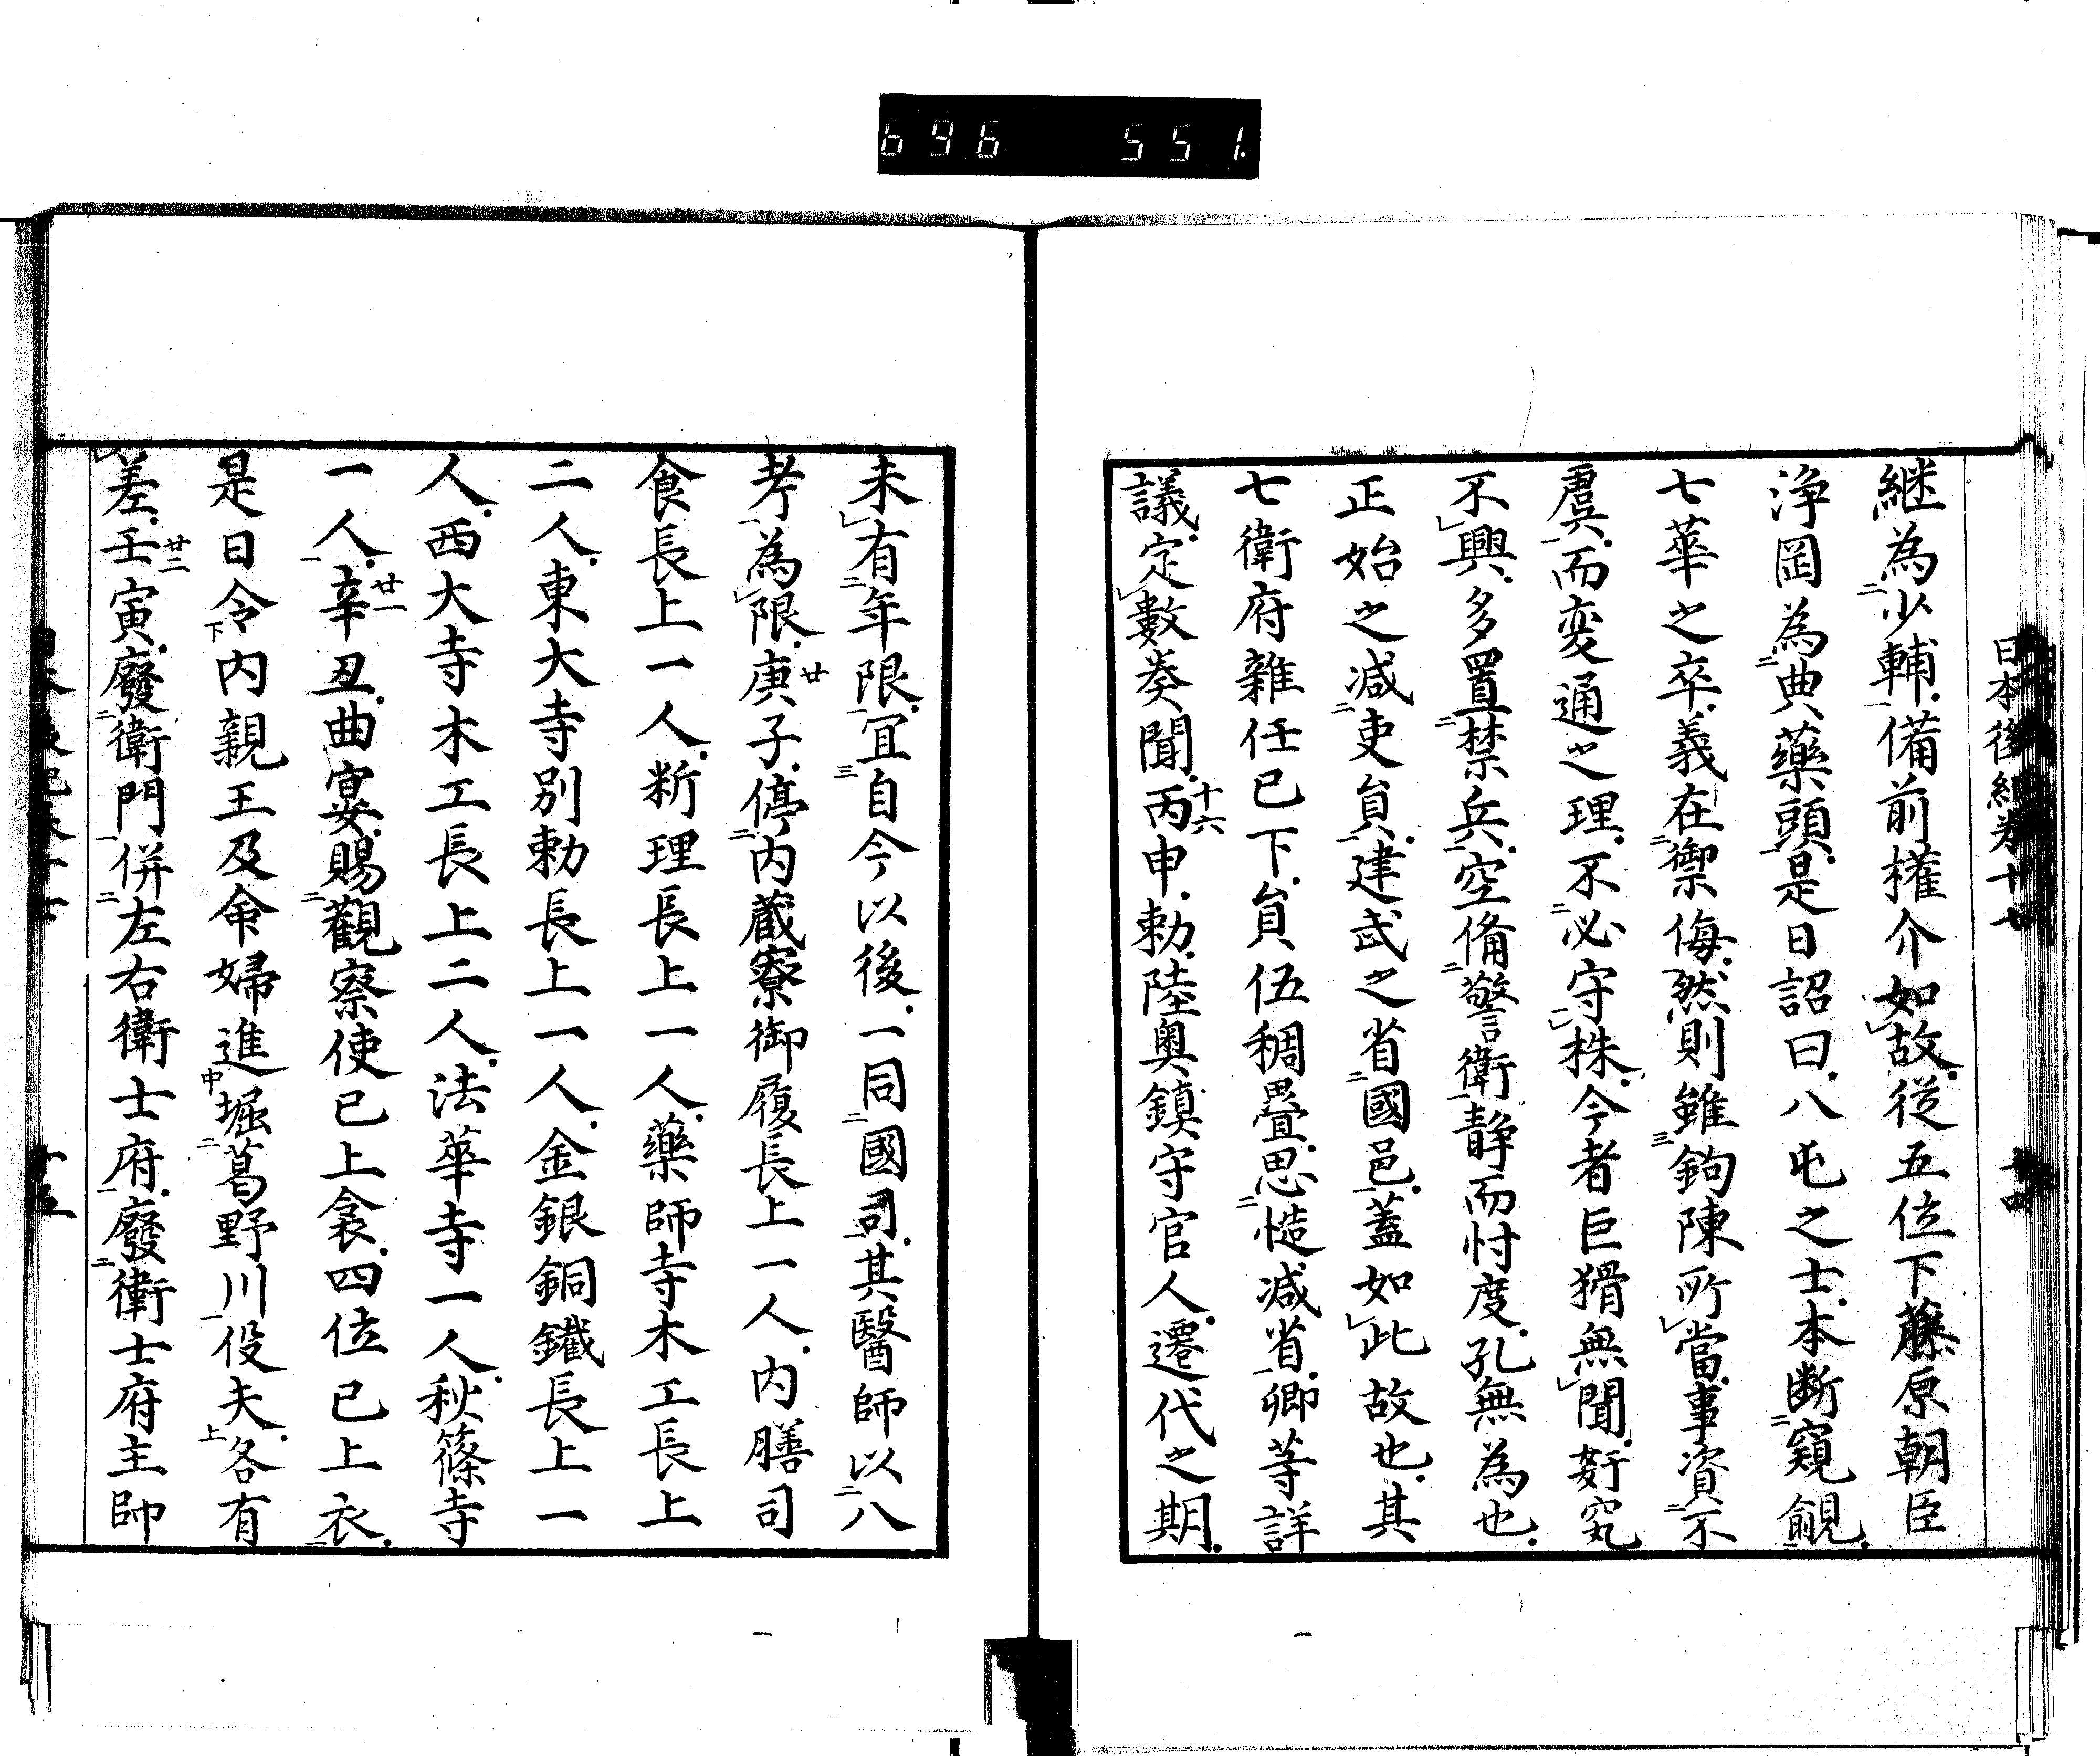 696 551
日本後紀巻十七 十四
継為少輔備前權介如故従五位下藤原朝臣
浄岡為典藥頭是日詔曰八屯之士本断窺覦
七萃之卒義在禦侮然則雖鉤陳所當事資不
虞而変通之理不必守株今者巨猾無聞姧宄
不興多置禁兵空備警衛静而忖度孔無為也
正始之減吏員建武之省國邑蓋如此故也其
七衛府雜任已下員伍稠疊思慥減省卿等詳
議定數奏聞丙申勅陸奧鎮守官人遷代之期
十六
未有年限宜自今以後一同國司其醫師以八
考為限庚子停内蔵寮御履長上一人内膳司
廿
食長上一人断理長上一人藥師寺木工長上
二人東大寺別勅長上一人金銀銅鐵長上一
人西大寺木工長上二人法華寺一人秋篠寺
一人辛丑曲宴賜觀察使已上衾四位已上衣
廿一
是日令内親王及命婦進堀葛野川役夫各有
差壬寅廢衛門併左右衛士府廢衛士府主帥
廿二